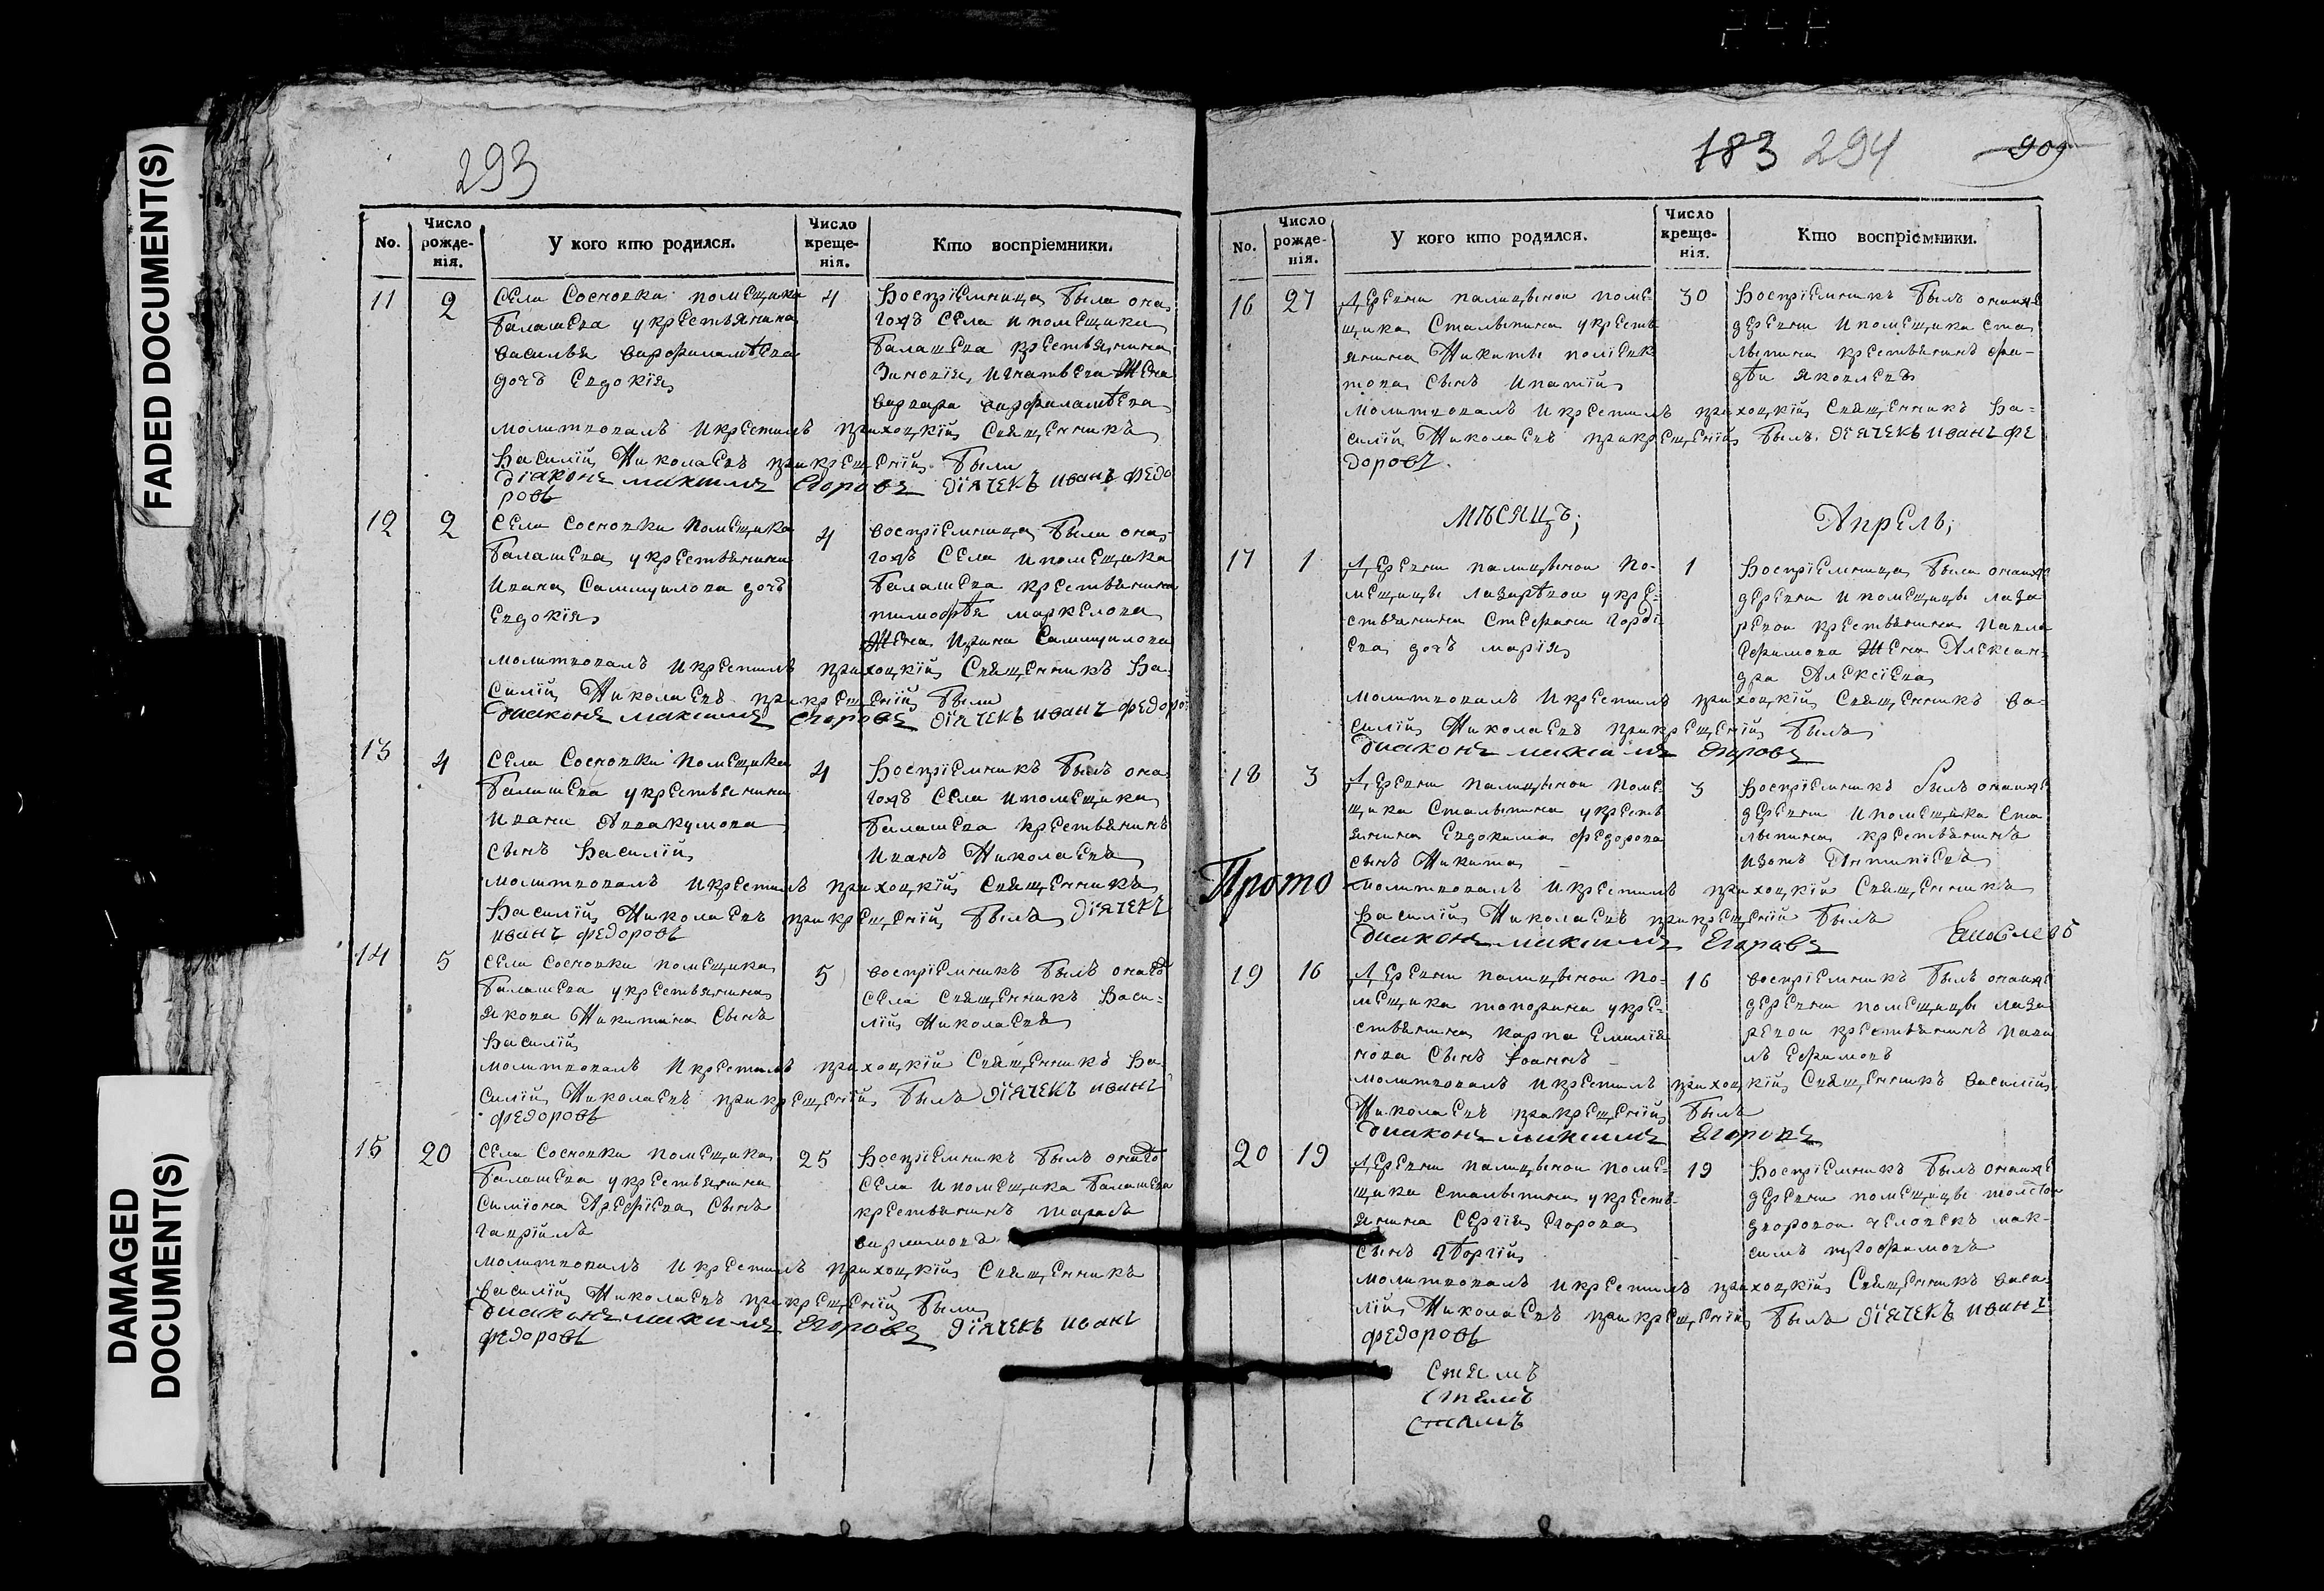 FADED DOCUMENT(S)
DAMAGED
DOCUMENT(S)
293
No.
Число рожде-нія.
У кого кто родился.
Число креще-нія.
Кто воспріемники.
11
2
Села Сосновки помещика
Балашева укрестьянина
василья варфаламѣева
дочь Евдокія
4
Воспріемница была она
гожъ села ипомещика
Балашева крестьянина
Зиновія игнатьева жена
варвара варфаламѣева
молитвовалъ икрестилъ прихоцкій священникъ
Василій Николаевъ прикрещеніи были
діаконъ максимъ Егоровъ діячекъ иванъ федо
ровъ
12
2
Села Сосновки помещика
Балашева укрестьянина
Ивана Самуилова дочь
Евдокія
4
воспріемница была она
гожъ села ипомещика
Балашева крестьянина
тимофѣя маркелова
жена Ирина Самуилова
молитвовалъ икрестилъ прихоцкій священникъ Ва-
силій Николаевъ прикрещеніи были
диаконъ максимъ егоровъ діячекъ иванъ федоро
13
4
Села Сосновки помещика
Балашева укрестьянина
Ивана Аввакумова
сынъ Василій
4
Воспріемникъ былъ она
гожъ села ипомещика
Балашева крестьянинъ
Иванъ Николаевъ
молитвовалъ икрестилъ прихоцкій священникъ
Василій Николаевъ прикрещеніи былъ діячекъ
иванъ федоровъ
14
5
Села Сосновки помещика
Балашева укрестьянина
Якова Никитина сынъ
Василій
5
воспріемникъ былъ онаго
села священникъ Васи-
лій Николаевъ
молитвовалъ икрестилъ прихоцкій священникъ Ва-
силій Николаевъ прикрещеніи былъ діячекъ иванъ
федоровъ
15
20
Села Сосновки помещика
Балашева укрестьянина
Симіона Арефіева сынъ
гавріилъ
25
Воспріемникъ былъ онаго
села ипомещика Балашева
крестьянинъ тарасъ
варламовъ
молитвовалъ икрестилъ прихоцкій священникъ
василій Николаевъ прикрещеніи были
диаконъ максимъ Егоровъ діячекъ иванъ
федоровъ
183 294 909
No.
Число рожде-нія.
У кого кто родился.
Число креще-нія.
Кто воспріемники.
16
27
Деревни палицыной поме
щика Сталыпина укресть
янина Никиты поліевк
това сынъ Ипатій
30
Воспріемникъ былъ онаяже
деревни ипомещика ста
лыпина крестьянинъ фа-
дѣй яковлевъ
молитвовалъ икрестилъ прихоцкій священникъ Ва-
силій Николаевъ прикрещеніи былъ діячекъ иванъ фе
доровъ.
мѣсяцъ; Апрель;
17
1
Деревни палицыной по-
мещицы лазарѣвой укре-
стьянина Стефана горді
ева дочь марія
1
Воспріемница была онаяже
деревни ипомещицы лаза
ревой крестьянина павла
Ефимова жена Алексан-
дра Алексіева
молитвовалъ икрестилъ прихоцкій священникъ ва-
силій Николаевъ прикрещеніи былъ
диаконъ максимъ Егоровъ
18
3
Деревни палицыной поме
щика Сталыпина укресть
янина Евдокима федорова
сынъ Никита
3
Воспріемникъ былъ онаяже
деревни ипомещика ста
лыпина крестьянинъ
изотъ Антипіевъ
Прото
молитвовалъ икрестилъ прихоцкій священникъ
Василій Николаевъ прикрещеніи былъ
диаконъ максимъ Егоровъ
19
16
Деревни палицыной по-
мещика топорина укре-
стьянина карпа Емилія
нова сынъ Іоаннъ
16
воспріемникъ былъ онаяже
деревни помещицы лаза
ревой крестьянинъ паве
лъ Ефимовъ
молитвовалъ икрестилъ прихоцкій священникъ василій
Николаевъ прикрещеніи былъ
диаконъ максимъ Егоровъ
20
19
Деревни палицыной поме-
щика сталыпина укресть-
янина Сергія Егорова
сынъ гѣоргій
19
Воспріемникъ былъ онаяже
деревни помещицы толстои
дворовой человекъ мак-
симъ трофимовъ
молитвовалъ икрестилъ прихоцкій священникъ васи-
лій Николаевъ прикрещеніи былъ діячекъ иванъ
федоровъ